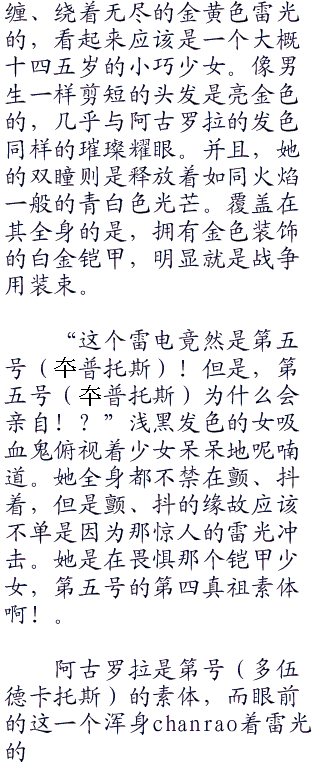 缠、绕着无尽的金黄色雷光
的，看起来应该是一个大概
十四五岁的小巧少女。像男
生一样剪短的头发是亮金色
的，几乎与阿古罗拉的发色
同样的璀璨耀眼。并且，她
的双瞳则是释放着如同火焰
一般的青白色光芒。覆盖在
其全身的是，拥有金色装饰
的白金铠甲，明显就是战争
用装束。
“这个雷电竟然是第五
号（夲普托斯）！但是，第
五号（夲普托斯）为什么会
亲自！？”浅黑发色的女吸
血鬼俯视着少女呆呆地呢喃
道。她全身都不禁在颤、抖
着，但是颤、抖的缘故应该
不单是因为那惊人的雷光冲
击。她是在畏惧那个铠甲少
女，第五号的第四真祖素体
啊！。
阿古罗拉是第号（多伍
德卡托斯）的素体，而眼前
的这一个浑身chanrao着雷光
的